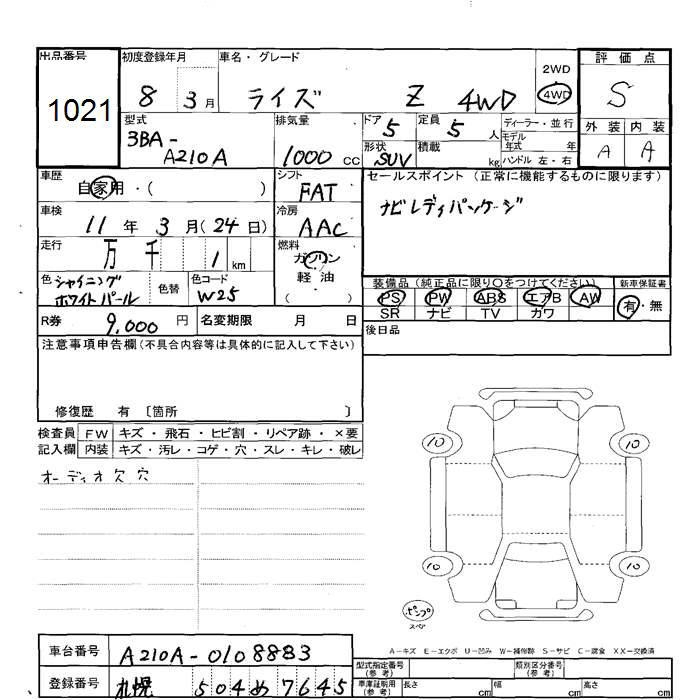 出品番号 初度登録年月 車名・グレード 評価点
1021 8 3月 ライズ Z 4WD 2WD 4WD S
型式 排気量 ドア 5 定員 5人 ディーラー・並行 外装 内装
3BA-A210A 1000cc 形状 SUV 積載 kg モデル年式 年 ハンドル 左・右 A A
車歴 自家用・( ) シフト FAT セールスポイント(正常に機能するものに限ります)
車検 11年 3月(24日) 冷房 AAC ナビレディパッケージ
走行 万 千 1km 燃料 ガソリン 軽油 ( )
色 シャイニングホワイトパール 色替 色コード W25 装備品(純正品に限り○をつけてください) 新車保証書
PS PW ABS エアB AW 有・無
SR ナビ TV カワ
R券 9,000円 名変期限 月 日 後日品
注意事項申告欄(不具合内容等は具体的に記入して下さい)
修復歴 有 〔箇所 〕
検査員 FW キズ・飛石・ヒビ割・リペア跡・×要
記入欄 内装 キズ・汚レ・コゲ・穴・スレ・キレ・破レ
オーディオ欠穴
10 10
10 10
テンプ
スペア
A-キズ E-エクボ U-凹み W-補修跡 S-サビ C-腐食 XX-交換済
車台番号 A210A-0108883 型式指定番号(参考) 類別区分番号(参考)
登録番号 札幌 504め7645 車庫証明用(参考) 長さ cm 幅 cm 高さ cm